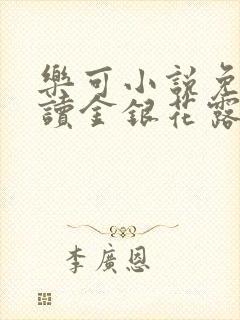 樂可小說免
讀金銀花露
李廣恩